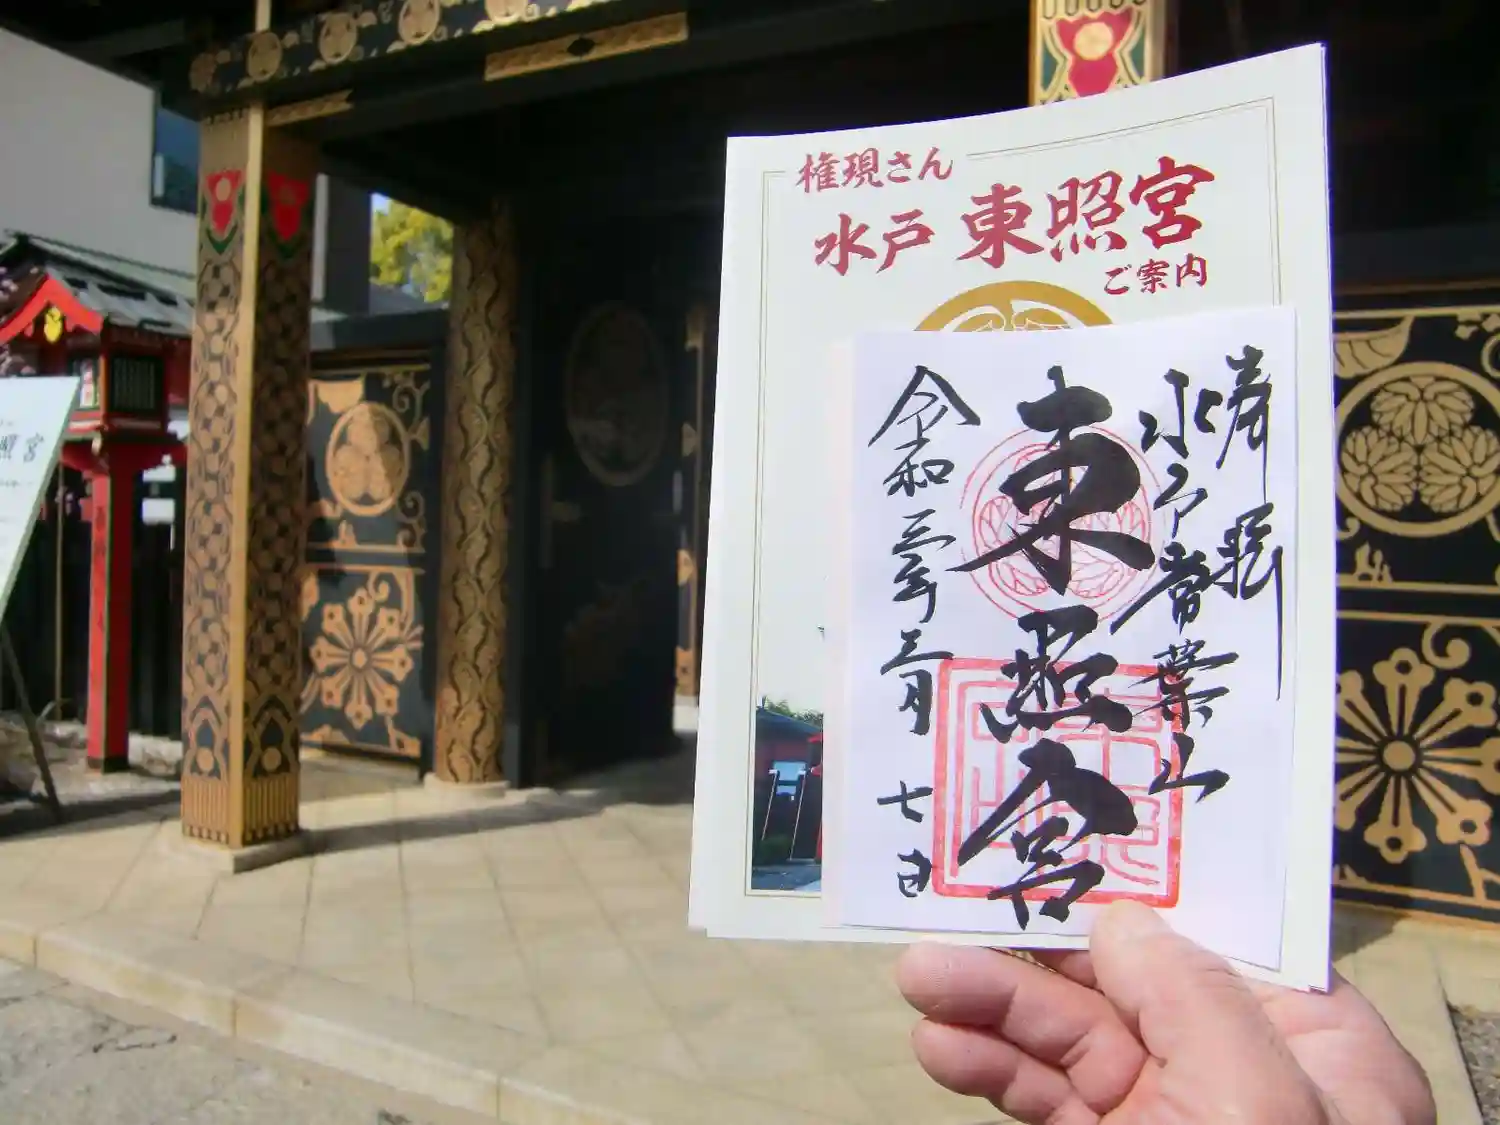 権現さん
水戸 東照宮
ご案内
奉拝
水戸常葉山
東照宮
令和三年三月七日
照宮